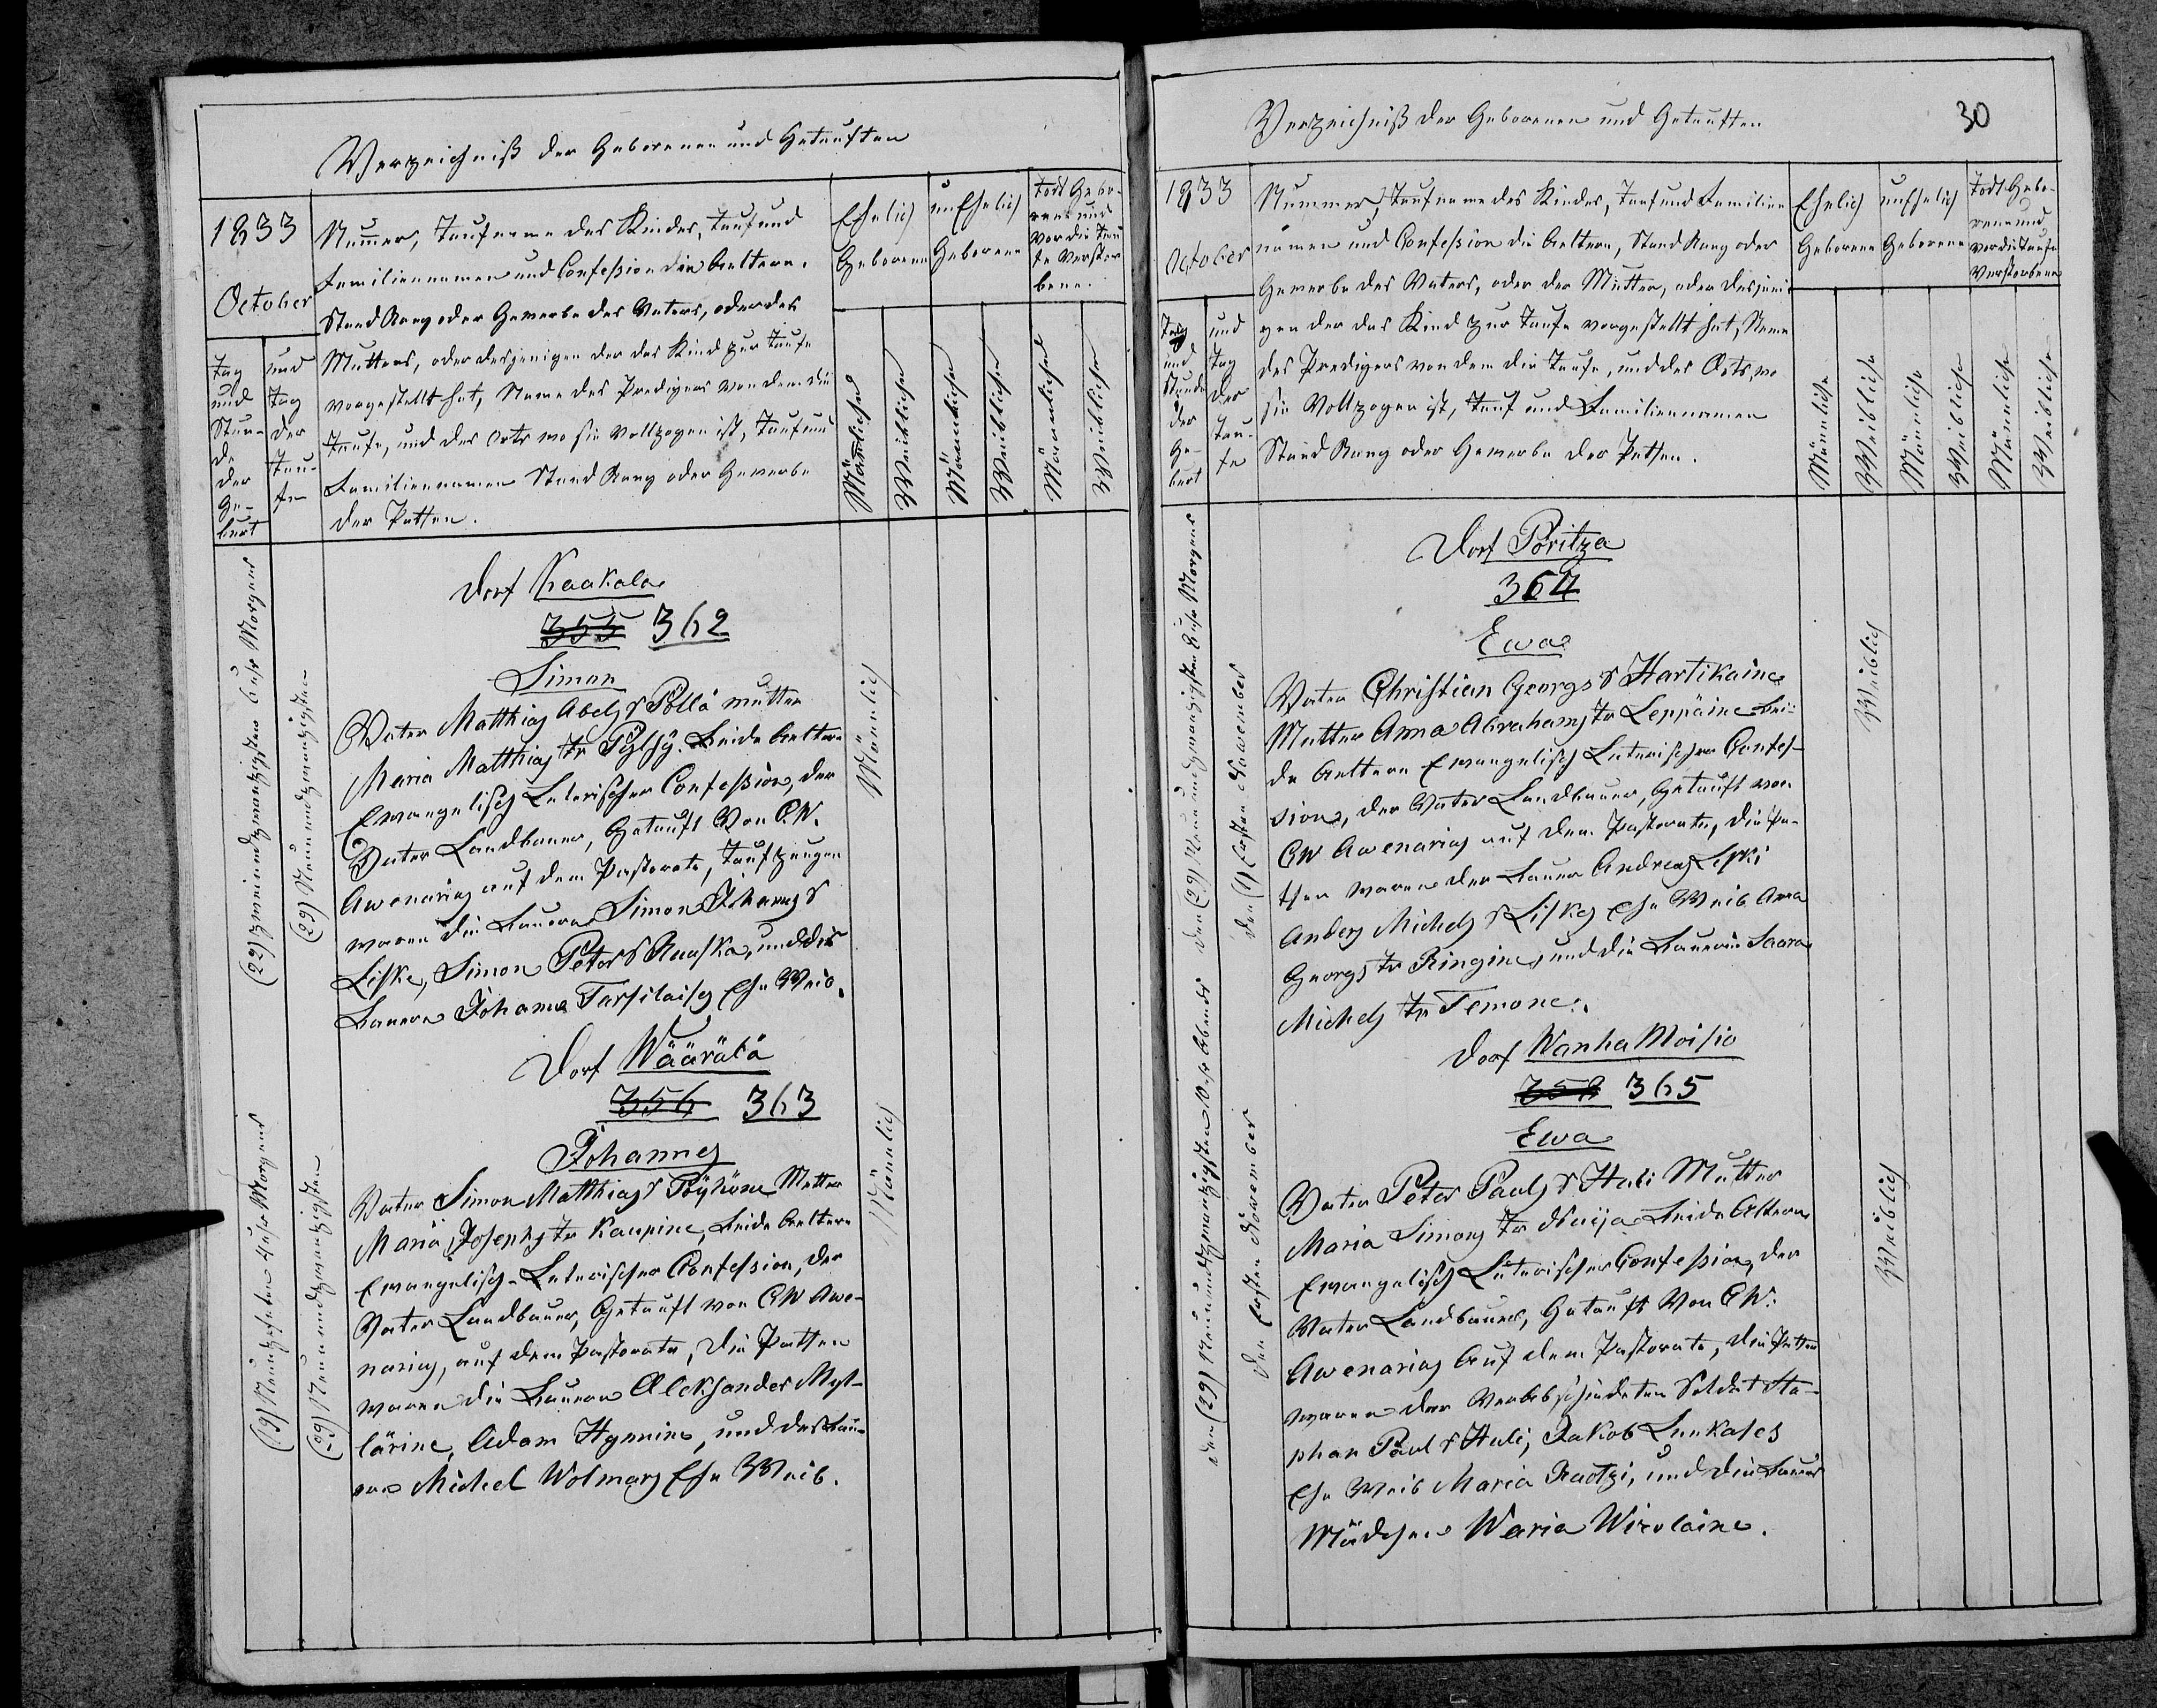 Verzeichniß der Geborenen und Getauften
1833
October
Tag
und
Stun-
de
der
Ge-
burt
und
Tag
der
Tau-
fe
Numer, Taufname des Kindes, Tauf und
Familiennamen und Confeßion die Aeltern,
Stand Rang oder Gewerbe des Vaters, oder der
Mutters, oder desjenigen der das Kind zur Taufe
vorgestellt hat, Name des Predigers von dem die
Taufe, und des Orts wo sie vollzogen ist, Tauf und
Familiennamen Stand Rang oder Gewerbe
der Pathen.
Ehelich
Geborene
unEhelich
Geborene
Todt Gebo-
rene und
vor die Tau
fe Verstor
bene.
Mänliche
Weibliche
Männliche
Weibliche
Männliche
Weibliche
(22) zweiundzwanzigsten Uhr Morgens
(29) Neunundzwanzigsten
Dorf Kaakala
355 362
Simon
Vater Matthias Abels S Pöllä Mutter
Maria Matthias Tr Pylsy. Beide Aeltern
Evangelisch Luterischer Confeßion, der
Vater Landbauer, Getauft Von C.W.
Awenarius auf dem Pastorate, Taufzeugen
waren die Bauern Simon Johans S
Liske, Simon Peter S Ruuska, und des
Bauern Johann Tarsilaises Ehe Weib.
Männlich
(19) Neunzehnten Uhr Morgens
(29) Neunundzwanzigsten
Dorf Wäärälä
356 363
Johannes
Vater Simon Matthias S Pöyhöne Mutter
Maria Josephs Tr Kaupine, Beide Aeltern
Evangelisch-Luterischer Confession, der
Vater Landbauer, Getauft von CW Awe-
narius, auf dem Pastorate, die Pathen
waren die Bauern Aleksander Myl-
lärine, Adam Hynnine, und des Bau-
ern Michel Wolmars Ehe Weib.
Männlich
Verzeichniß der Geborenen und Getauften
30
1833
October
Tag
und
Stunde
der
Ge-
burt
und
Tag
der
Tau-
fe
Nummer, Taufname des Kindes, Tauf und Familien
namen und Confession die Aeltern, Stand Rang oder
Gewerbe des Vaters, oder der Mutter, oder desjeni
gen der das Kind zur Taufe vorgestellt hat, Name
des Predigers von dem die Taufe, und des Orts, wo
sie Vollzogen ist, Tauf und Familiennamen
Stand Rang oder Gewerbe der Pathen.
Ehelich
Geborene
unehelich
Geborene
Todt Gebo-
rene und
vor die Taufe
Verstorbene
Männliche
Weibliche
Männliche
Weibliche
Männliche
Weibliche
den (29) Neunundzwanzigsten Uhr Morgens
den (1) Ersten November
Dorf Poritza
364
Ewa
Vater Christian Georgs S Hartikaine
Mutter Anna Abrahams Tr Leppäine Bei-
de Aeltern Evangelisch Luterischer Confes-
sion, der Vater Landbauer, Getauft von
CW Awenarius auf dem Pastorate, die Pa-
then waren der Bauer Andreas Lepki
Anders Michels S Liskes Ehe Weib Anna
Georgs Tr Ringine, und die Bauerin Saara
Michels Tr Temone.
Weiblich
den (29) Neunundzwanzigsten Uhr Abends
den Ersten November
Dorf Wanha Moisio
358 365
Ewa
Vater Peter Pauls S Huli Mutter
Maria Simons Tr Nuija Beide Aeltern
Evangelisch Luterischer Confeßion, der
Vater Landbauer, Getauft Von C W.
Awenarius Auf dem Pastorate, die Pathen
waren der Verabschiedeten Soldat Ste-
phan Paul S Huli, Jakob Luukases
Ehe Weib Maria Raotzi, und die Bauer
Mädchen Maria Wirolaine.
Weiblich